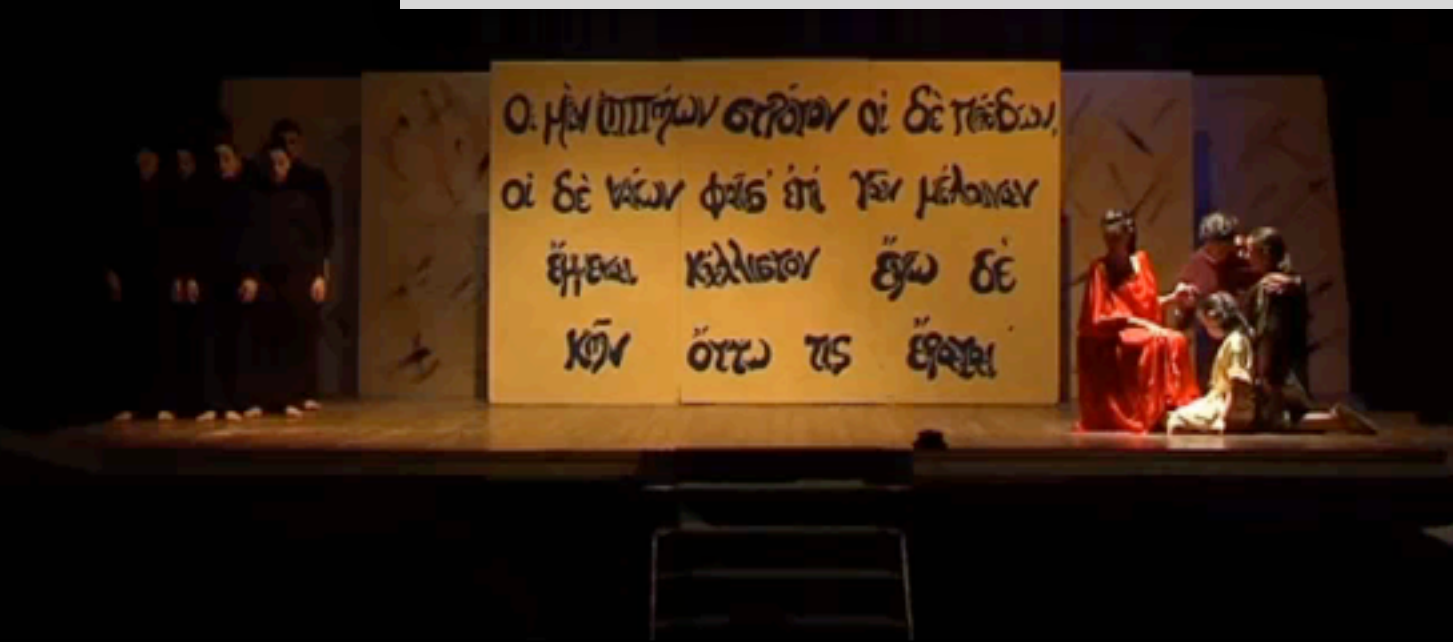 Οἰ μὲν ἰππήων στρότον οἰ δὲ πέσδων,
οἰ δὲ νάων φαῖσ' ἐπὶ γᾶν μέλαιναν
ἔμμεναι κάλλιστον ἔγω δὲ
κῆν' ὄττω τις ἔραται